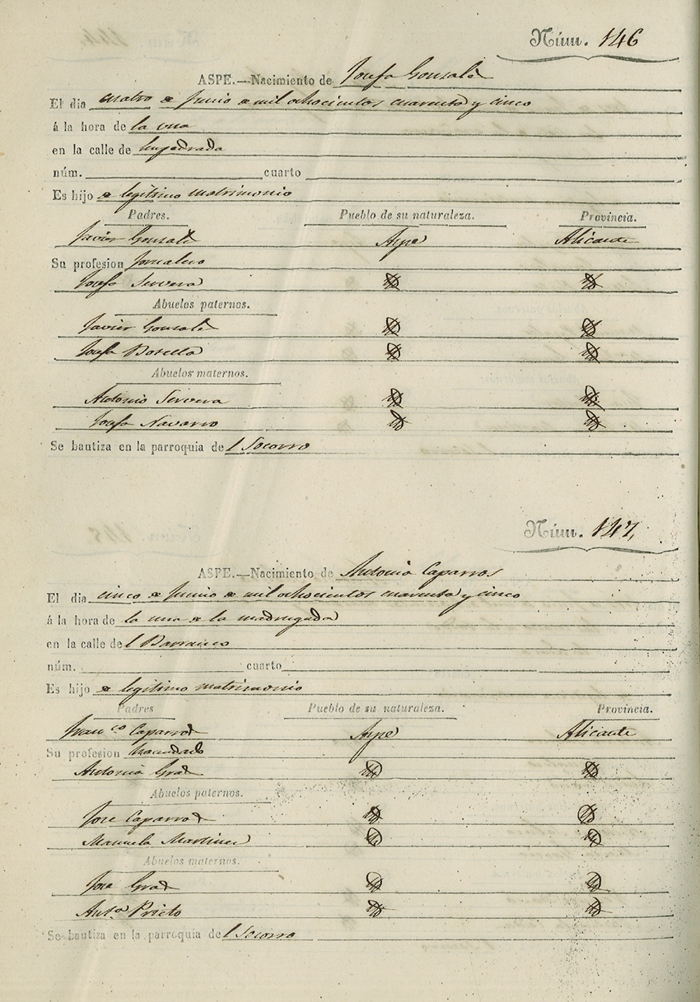 Núm. 146
ASPE.—Nacimiento de Josefa Gonzalez
El dia cuatro de Junio de mil ochocientos cuarenta y cinco
á la hora de la una
en la calle de Empedrada
núm. cuarto
Es hijo de legítimo matrimonio
Padres. Pueblo de su naturaleza. Provincia.
Javier Gonzalez Aspe Alicante
Su profesion Jornalero
Josefa Servera
Abuelos paternos.
Javier Gonzalez
Josefa Botella
Abuelos maternos.
Antonio Servera
Josefa Navarro
Se bautiza en la parroquia del Socorro
Núm. 147
ASPE.—Nacimiento de Antonio Caparros
El dia cinco de Junio de mil ochocientos cuarenta y cinco
á la hora de la una de la madrugada
en la calle del Barranco
núm. cuarto
Es hijo de legítimo matrimonio
Padres Pueblo de su naturaleza. Provincia.
Franco Caparros Aspe Alicante
Su profesion hacendado
Antonia Grao
Abuelos paternos.
Jose Caparros
Manuela Martinez
Abuelos maternos.
Jose Grao
Anta Prieto
Se bautiza en la parroquia del Socorro